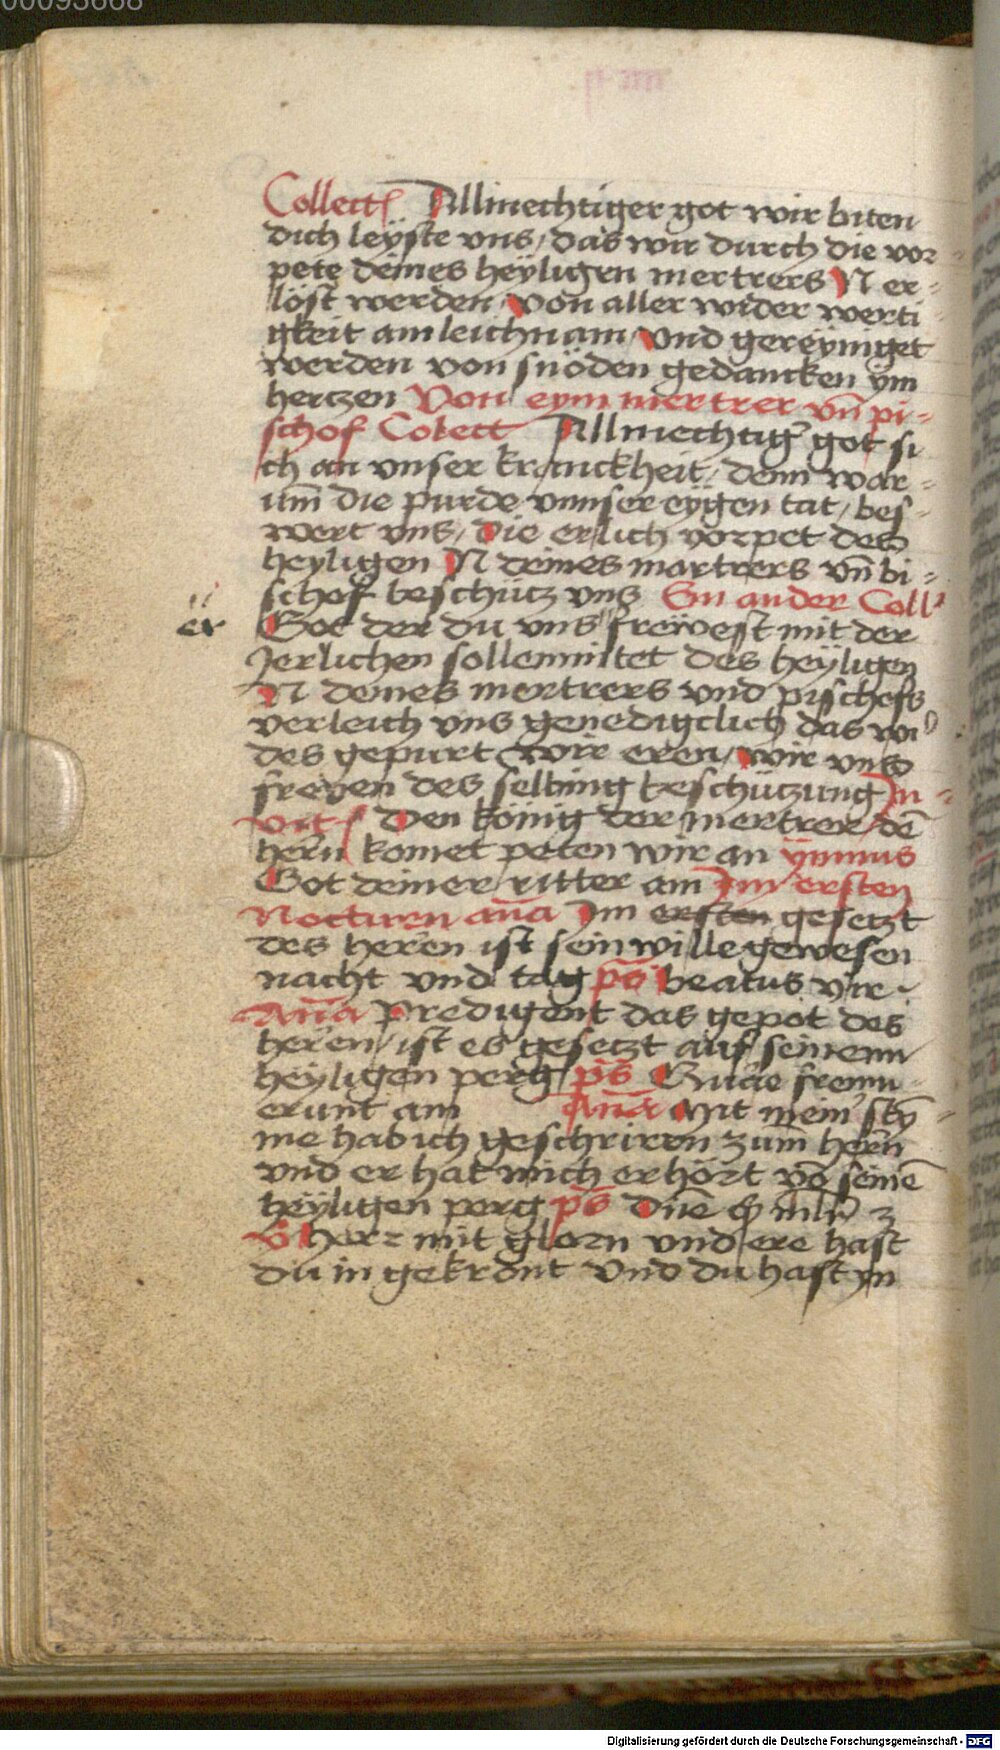 00093668
Collect Allmechtiger got wir biten
dich leyste vns / das wir durch die vor
pete deines heyligen mertrers N er-
löst werden / von aller wider werti
gkeit am leichnam / vnd gereyniget
werden von snöden gedancken ym
hertzen Von eym mertrer vn̄ pi-
schof Colect Allmechtig' got si
ch an vnser kranckheit / denn war-
um̄ die purde vnnser eygen tat / bes-
wert vns / die erlich vorpet des
heyligen N deines martrers vn̄ bi-
schof beschütz vns Ein ander Coll'
er Got der du vns " frewest mit der
Jerlichen sollemnitet des heyligen
N deines mertrers vnd pischofs
verleich vns genedigclich das wi'
des gepurt wir eren / wir vns
freyen des selbing beschützung In-
vit Den könig der mertrer / dē
hern komet peten wir an ymnus
Got deiner ritter am Im ersten
Nocturn an̄a Im ersten gesetzt
des heren ist sein wille gewesen
nacht vnd tag ps̄ beatus vir
An̄a Predigent das gepot des
heren / ist es gesetzt auf seinenn
heyligen perg / ps̄ Quare fremu-
erunt am An̄a Mit mein' sty̅-
me hab ich geschriren zum hern
vnd er hat mich erhört vō seinē
heyligen perg ps̄ Dn̄e
V̄ herr mit glorn vnd ere hast
du in gekrönt Vnd du hast yn
Digitalisierung gefördert durch die Deutsche Forschungsgemeinschaft - DFG